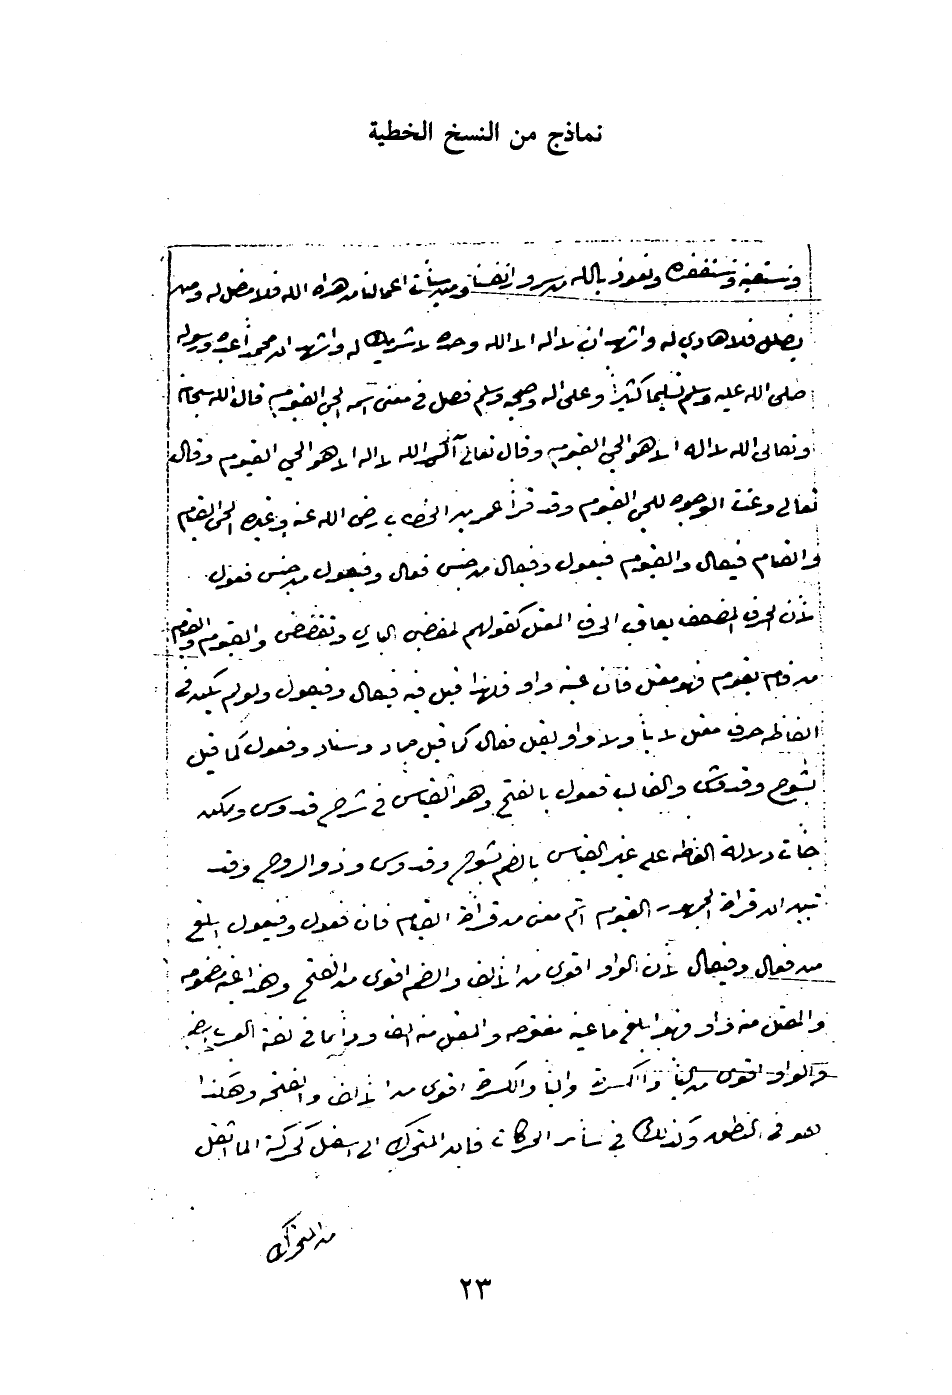 نماذج من النسخ الخطية
ونستعينه ونستغفره ونعوذ بالله من شرور انفسنا ومن سيئات اعمالنا من هداه الله فلا مضل له ومن
يضلل فلا هادي له واشهد ان لا اله الا الله وحده لا شريك له واشهد ان محمداً عبده ورسوله
صلى الله عليه وسلم تسليما كثيرا وعلى اله وصحبه وسلم فصل في معنى اسمه الحي القيوم قال الله سبحانه
وتعالى الله لا اله الا هو الحي القيوم وقال تعالى آلم الله لا اله الا هو الحي القيوم وقال
تعالى وعنت الوجوه للحي القيوم وقد قرأ عمر بن الخطاب رضي الله عنه وغيره الحي القيام
والقيام فيعال والقيوم فيعول وفيعال من جنس فعال وفيعول من جنس فعول
لأن الحرف المضعف يعاقب الحرف المعتل كقولهم تقضي البازي وتقضض والقيوم والقيام
من قام يقوم فهو معتل فان عينه واو فلهذا قيل فيه فيعال وفيعول ولو لم يكن في
الفاظه حرف معتل لا يأ ولا واو لقيل فعال كما قيل حماد وستار وفعول كما قيل
سبوح وقدوس والغالب فعول بالفتح وهو القياس في سبوح قدوس ولكن
جأت دلالة اللفظ على غير القياس بالضم سبوح وقدوس وذو الروح وقد
تبين ان قراة الجمهور القيوم اتم معنى من قراة القيام فان فعول وفيعول ابلغ
من فعال وفيعال لأن الواو اقوى من الألف والضم اقوى من الفتح وهذا عينه مضمومه
والمعتل منه واو فهو ابلغ مما عينه مفتوحه والمعتل منه الف ودأيما في لغة العرب الضم
والواو اقوى من اليا والكسرة واليا والكسرة اقوى من الألف والفتحه وهكذا
هو في النطق وكذلك في سأير الحركات فان المتحرك الى اسفل كحركة الما اثقل
من المتحرك
٢٣